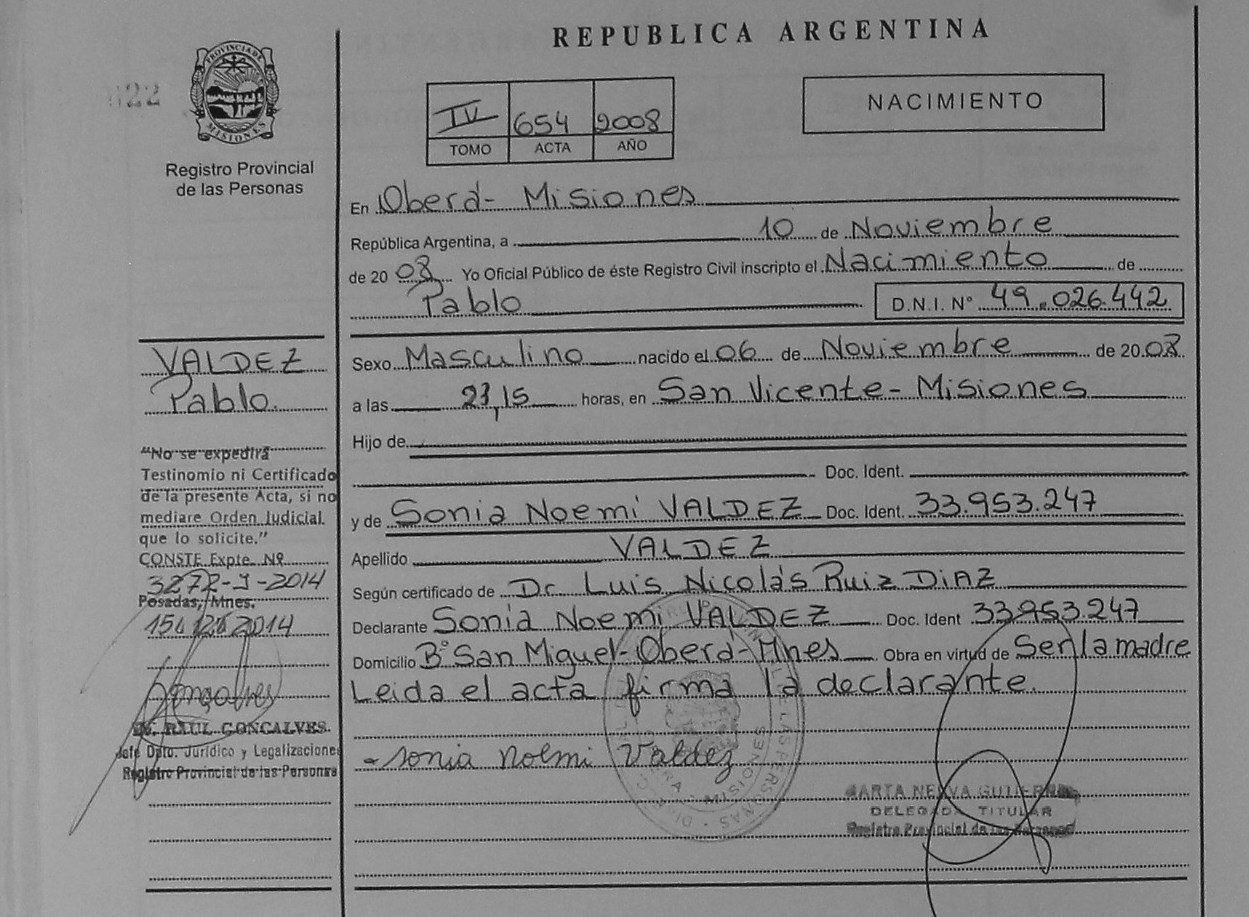 REPUBLICA ARGENTINA
022
PROVINCIA DE MISIONES
Registro Provincial
de las Personas
IV 654 2008
TOMO ACTA AÑO
NACIMIENTO
En Oberá - Misiones
República Argentina, a 10 de Noviembre
de 20 08 Yo Oficial Público de éste Registro Civil inscripto el Nacimiento de
Pablo D.N.I. N° 49.026.442
VALDEZ
Pablo.
Sexo Masculino nacido el 06 de Noviembre de 20 08
a las 23,15 horas, en San Vicente - Misiones
Hijo de
Doc. Ident.
y de Sonia Noemi VALDEZ Doc. Ident. 33.953.247
Apellido VALDEZ
Según certificado de Dr. Luis Nicolás Ruiz DIAZ
Declarante Sonia Noemi VALDEZ Doc. Ident 33.953.247
Domicilio B° San Miguel - Oberá - Mnes Obra en virtud de Ser la madre
Leida el acta firma la declarante.
- Sonia Noemi Valdez
"No se expedirá
Testinomio ni Certificado
de la presente Acta, si no
mediare Orden Judicial
que lo solicite."
CONSTE Expte. Nº
3272-J-2014
Posadas, Mnes.
2014
RAUL GONCALVES.
Jefe Dpto. Jurídico y Legalizaciones
Registro Provincial de las Personas
MARTA
DELEGADA TITULAR
Registro Provincial de las Personas